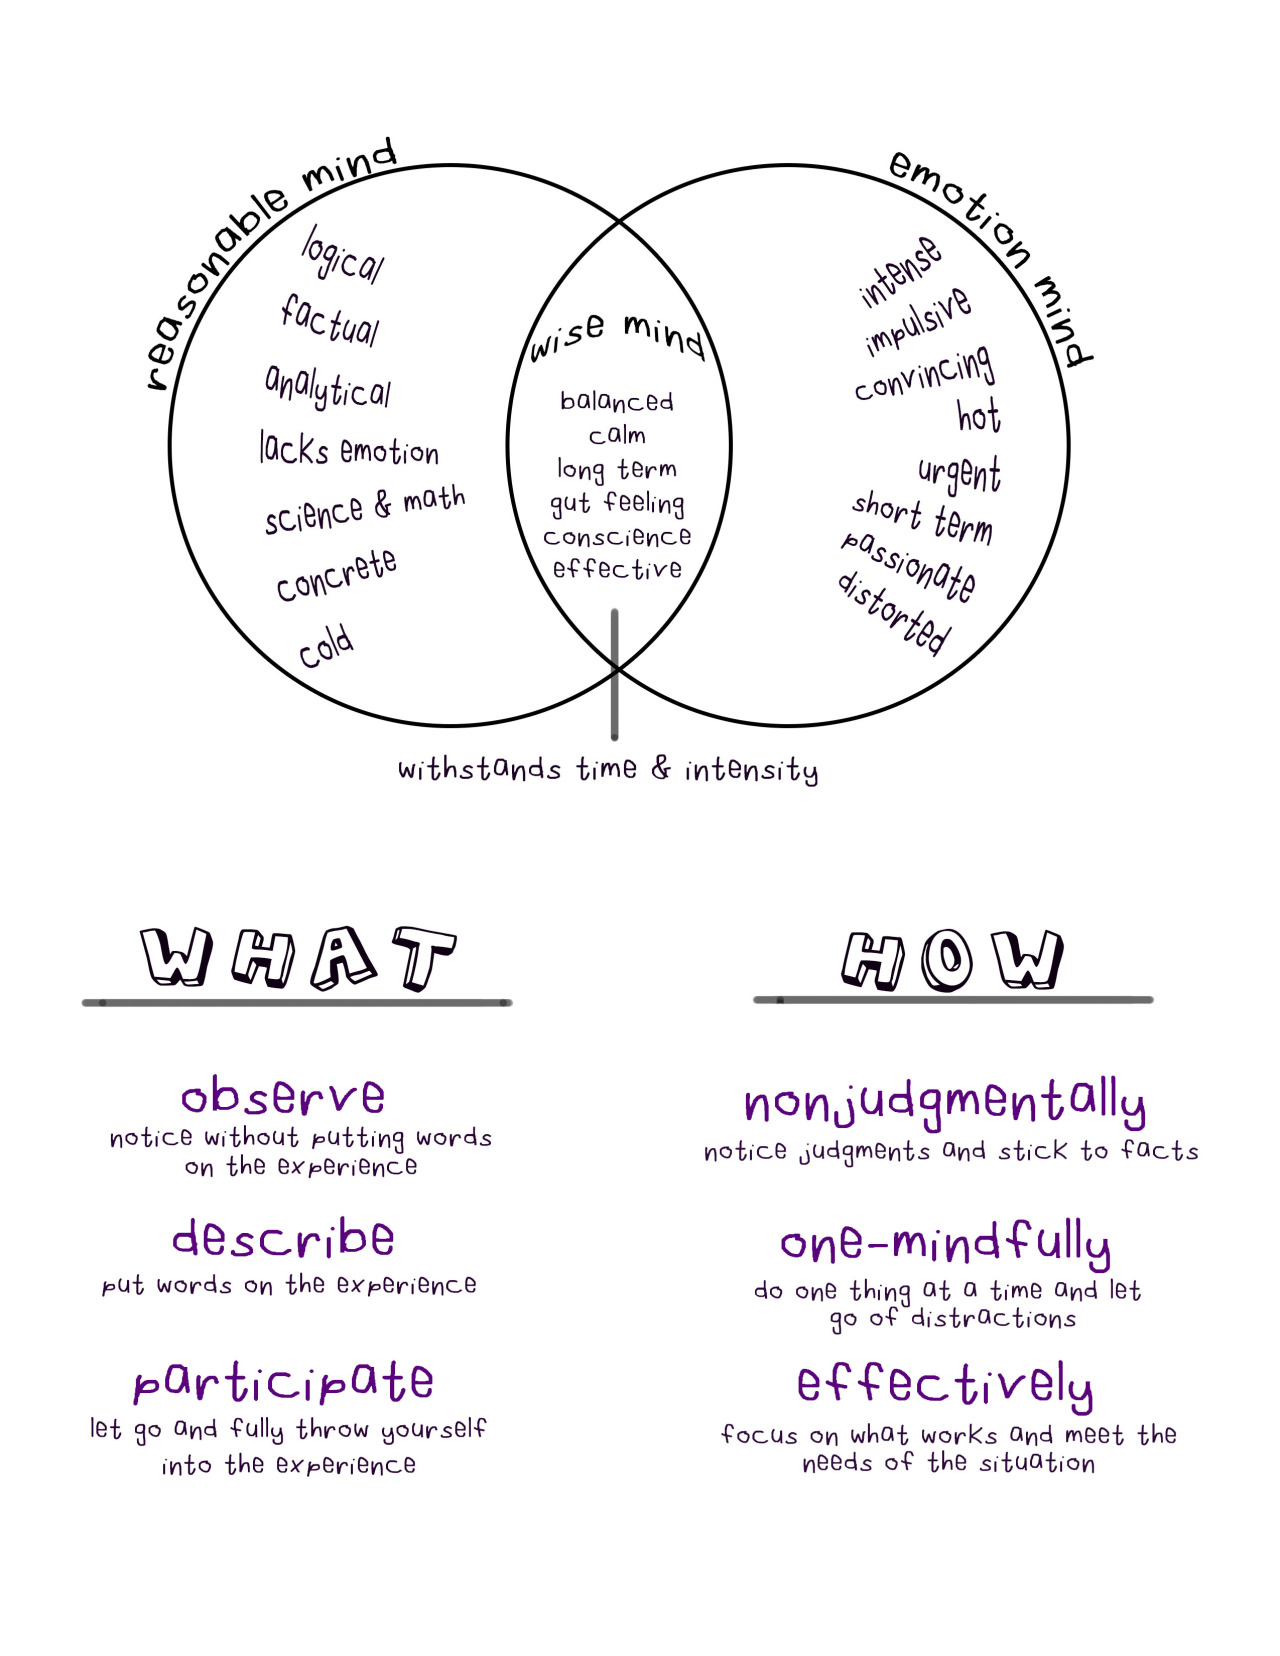 reasonable mind
logical
factual
analytical
lacks emotion
science & math
concrete
cold
wise mind
balanced
calm
long term
gut feeling
conscience
effective
emotion mind
intense
impulsive
convincing
hot
urgent
short term
passionate
distorted
withstands time & intensity
WHAT
observe
notice without putting words
on the experience
describe
put words on the experience
participate
let go and fully throw yourself
into the experience
HOW
nonjudgmentally
notice judgments and stick to facts
one-mindfully
do one thing at a time and let
go of distractions
effectively
focus on what works and meet the
needs of the situation